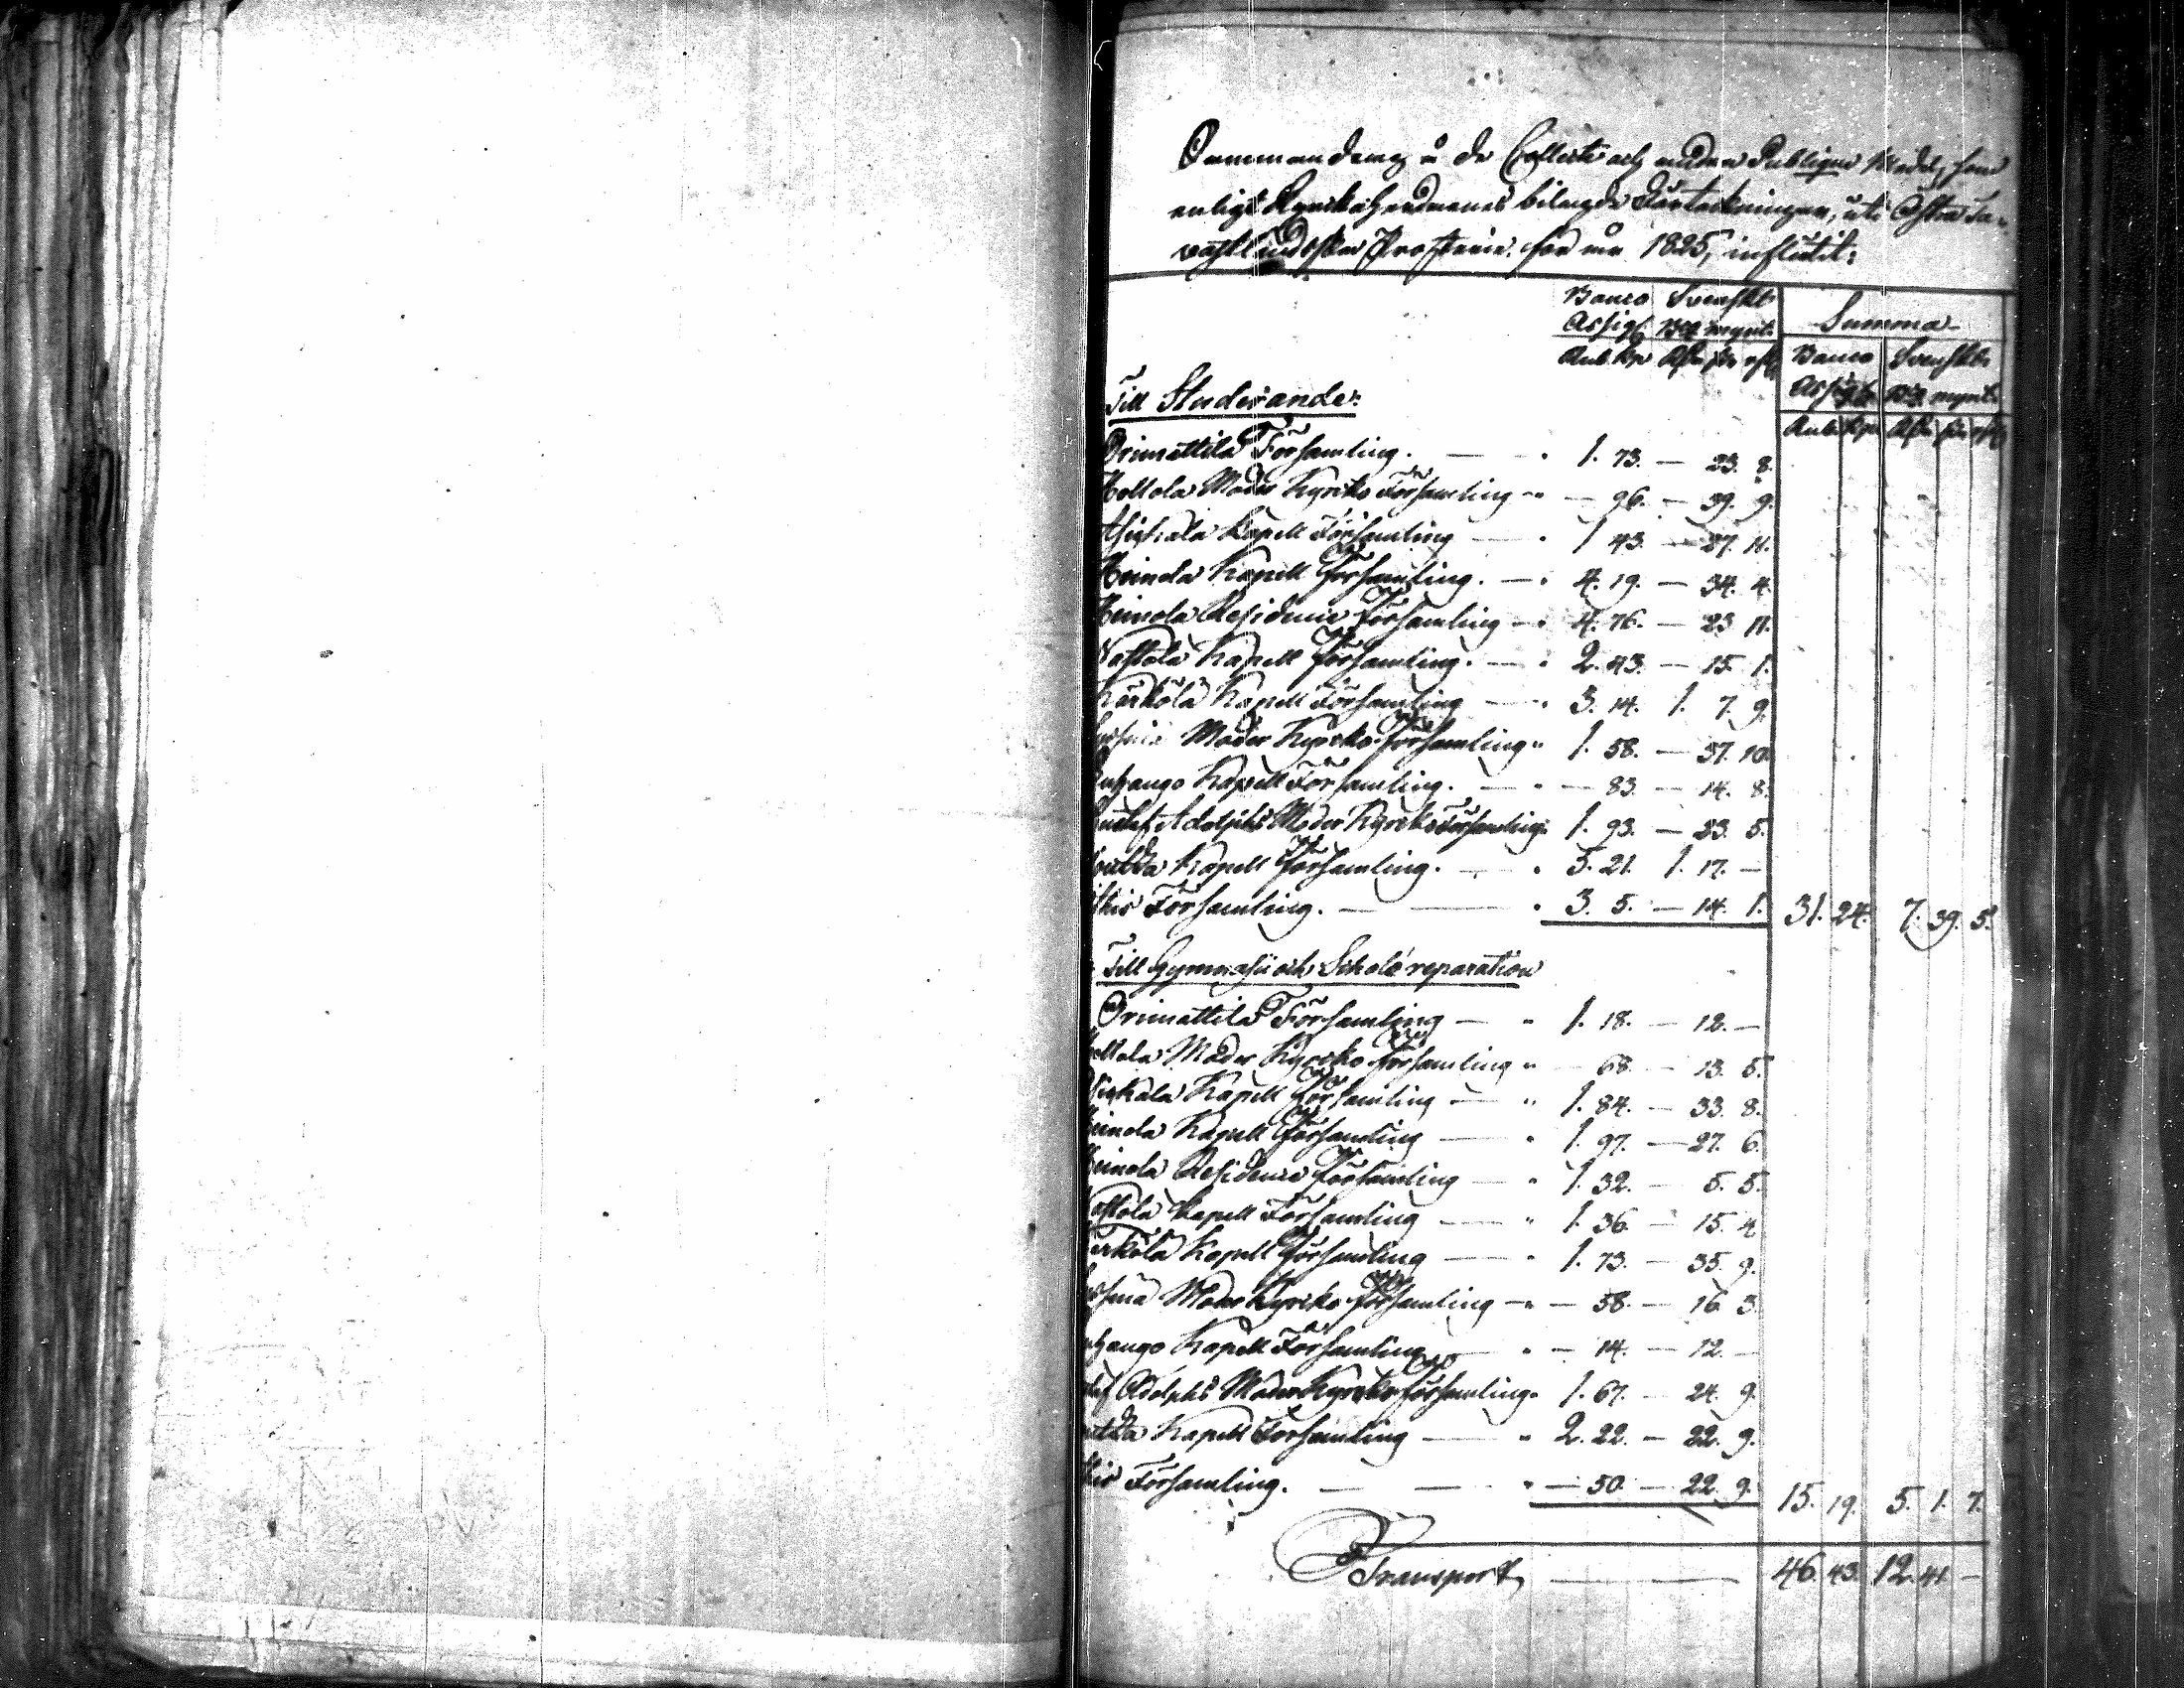 Sammandrag å de Collecter och andra Publique Medel, som
enligt Kyrkoherdarnes bilagde Förtekningar, uti Östra Ta-
vastländska Prosteriet för år 1825, influtit:
Banco Svenskt
Assign. Bco mynt. Summa
Rub. Kpr Rdr sk. rst. Banco Svenskt
Till Studerande: Assign. Bco mynt.
Rub. Kpr Rdr sk. rst.
Orimattila Församling. — 1. 73. — 23. 8.
Hollola Moder Kyrko Församling — 96. — 39. 9.
Asikkala Kapell Församling — 1 43. — 27. 11.
Heinola Kapell Församling. — 4. 19. — 34. 4.
Heinola Residence Församling — 4. 76. — 23 11.
Nastola Kapell Församling. — 2. 43. — 15. 1.
Kärkölä Kapell Församling — 3. 14. 1. 7. 9.
Sysmä Moder Kyrko Församling " 1. 58. — 37. 10.
Luhango Kapell Församling. — — 83. — 14. 8.
Gustaf Adolphs Moder Kyrko Församling 1. 93. — 23. 5.
Kapell Församling. — 5. 21. 1. 17. —
Församling. — 3. 5. — 14. 1. 31. 24. 7. 39. 5.
Till Gymnasii och Schole reparation
Orimattila Församling — " 1. 18. — 12. —
Hollola Moder Kyrko Församling " — 68. — 13. 5.
Asikkala Kapell Församling — " 1. 84. — 33. 8.
Heinola Kapell Församling — " 1. 97. — 27. 6.
Heinola Residence Församling — " 1. 32. — 5. 5.
Nastola Kapell Församling — " 1. 36. — 15. 4
Kärkölä Kapell Församling — " 1. 73. — 35. 9.
Sysmä Moder Kyrko Församling — " — 58. — 16. 3.
Luhango Kapell Församling — " — 14. — 12. —
Gustaf Adolphs Moder Kyrko Församling " 1. 67. — 24. 9.
Kapell Församling — " 2. 22. — 22. 9.
Församling. — — " — 50. — 22. 9. 15. 19. 5. 1. 7.
Transport — 46. 43. 12. 41 —